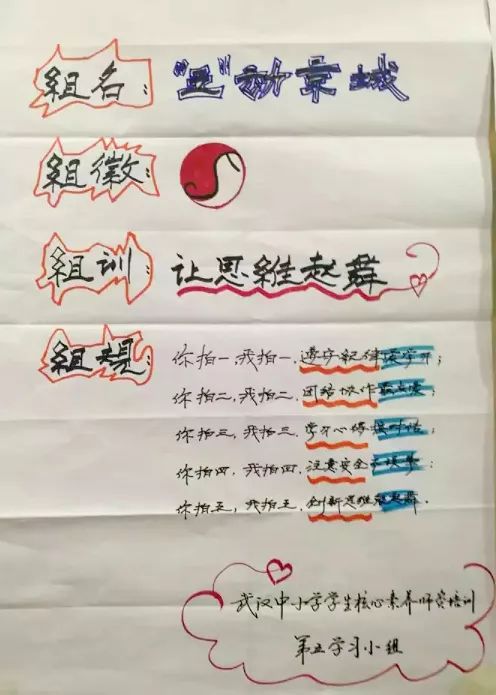 組名：“五”动京城
組徽：
組训：让思維起舞
組規：
你拍一，我拍一，遵守纪律学习；
你拍二，我拍二，团结协作；
你拍三，我拍三，学习心得；
你拍四，我拍四，注意安全；
你拍五，我拍五，创新思维起舞．
武汉中小学学生核心素养师资培训
第五学习小组